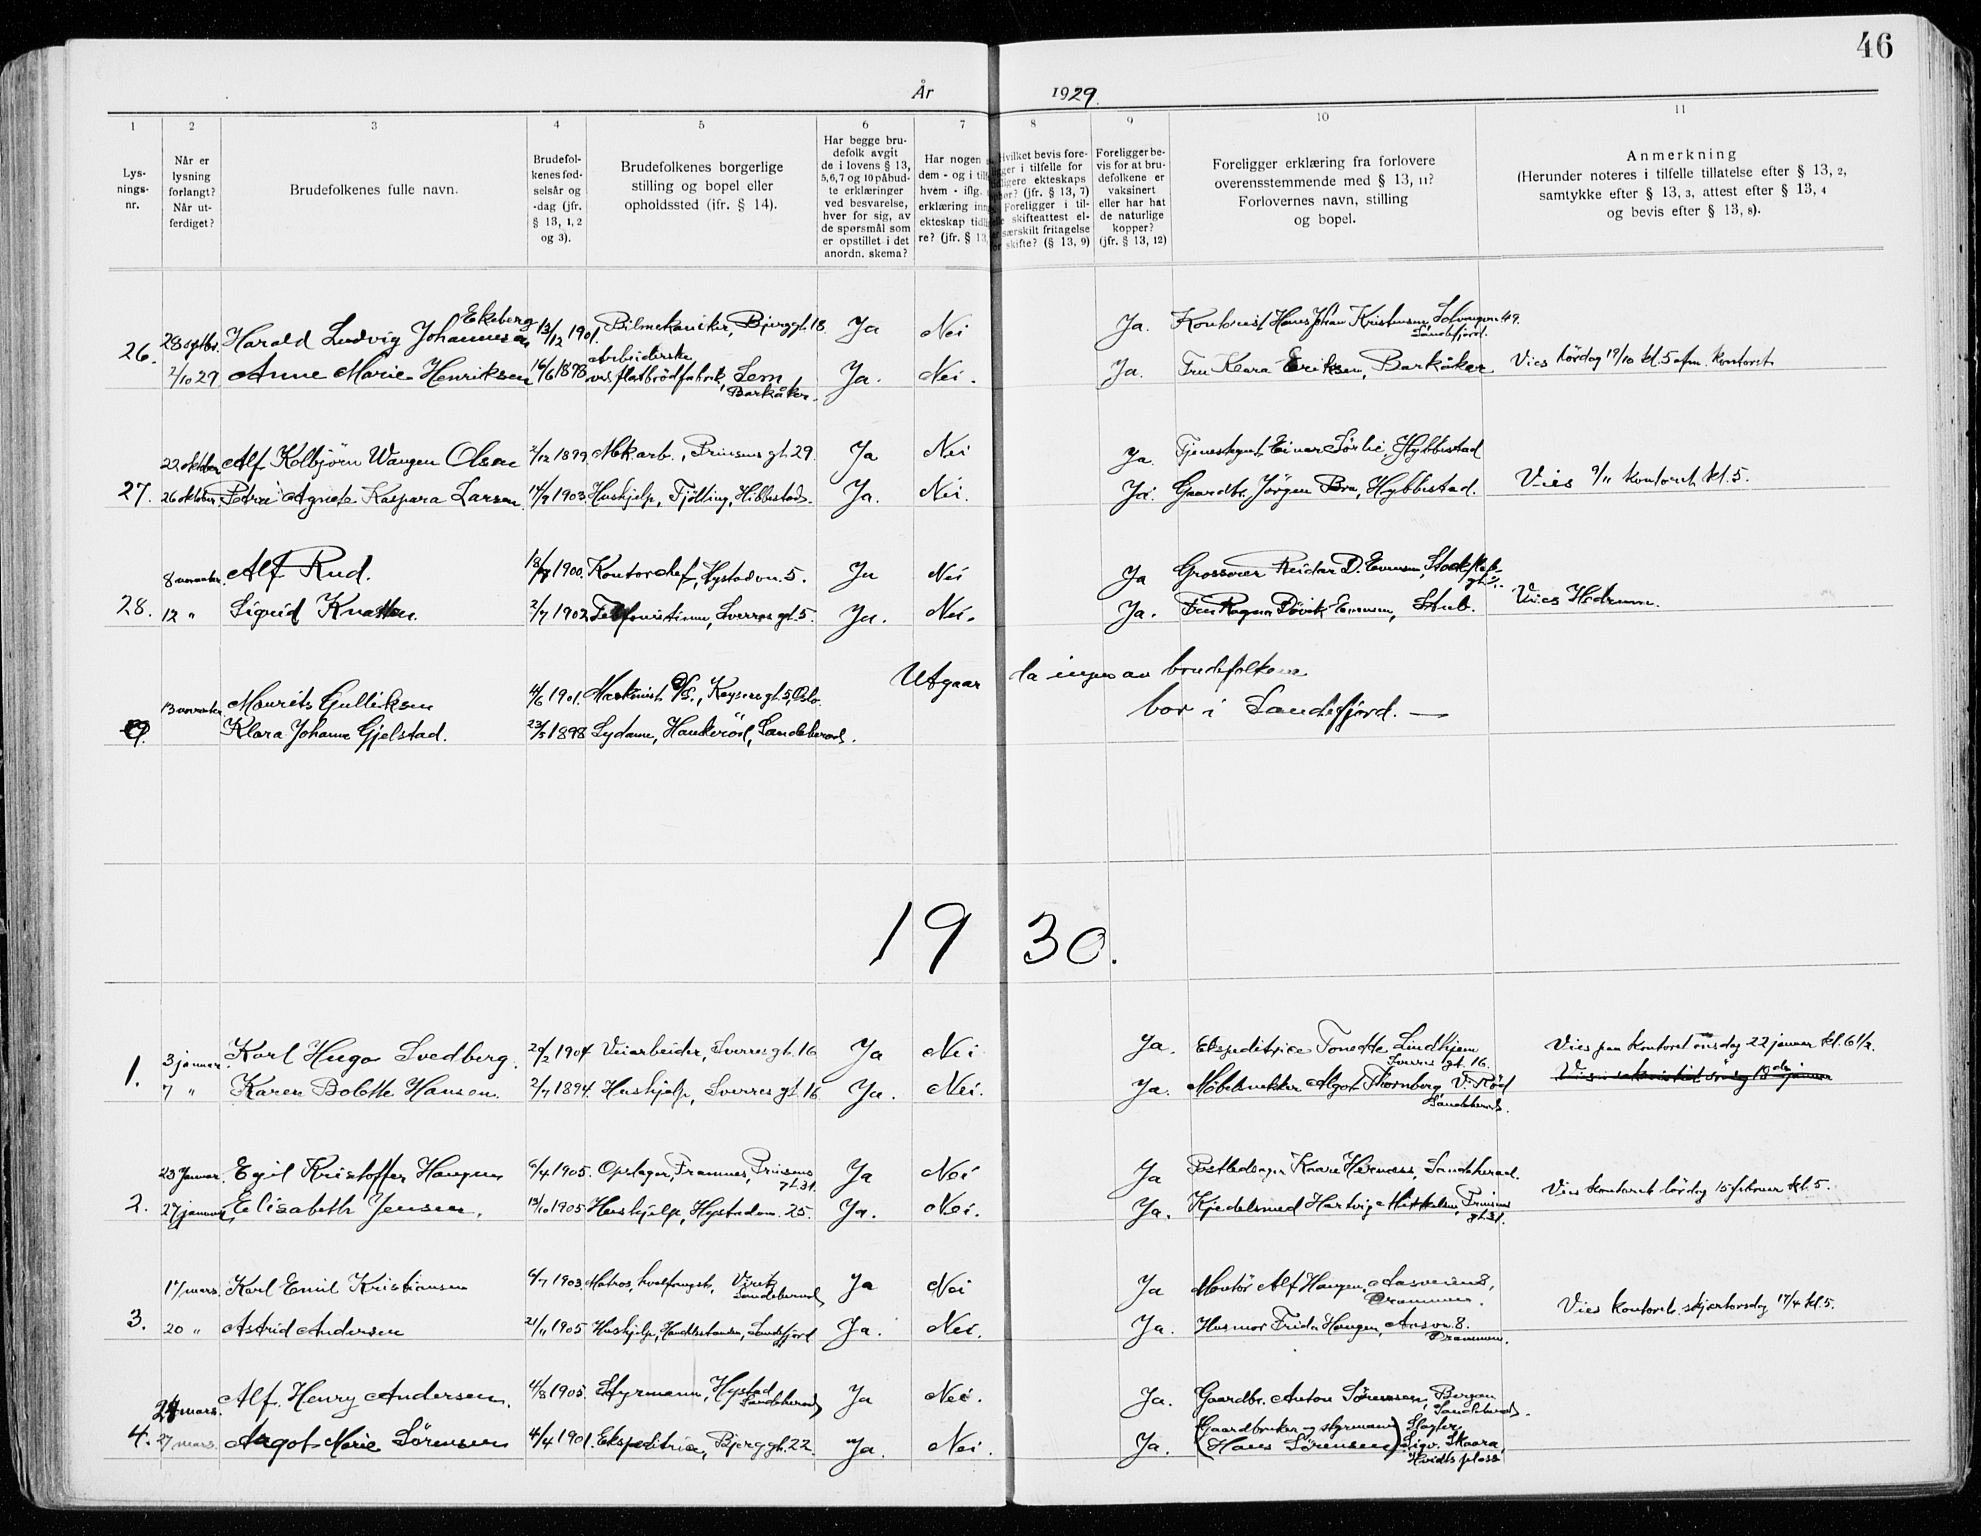 46
År 1929.
1 2 3 4 5 6 7 8 9 10 11
Lys-
nings-
nr.
Når er
lysning
forlangt?
Når ut-
ferdiget?
Brudefolkenes fulle navn.
Brudefol-
kenes fød-
selsår og
-dag (jfr.
§ 13, 1, 2
og 3).
Brudefolkenes borgerlige
stilling og bopel eller
opholdssted (jfr. § 14).
Har begge bru-
defolk avgit
de i lovens § 13,
5, 6, 7 og 10 påbud-
te erklæringer
ved besvarelse,
hver for sig, av
de spørsmål som
er opstillet i det
anordn. skema?
Har nogen
dem - og i til
hvem - iflg.
erklæring inng
ekteskap tidl
re? (jfr. § 13,
Hvilket bevis fore-
ligger i tilfelle for
tidligere ekteskaps
ophør? (jfr. § 13, 7)
Foreligger i til-
skifteattest el-
særskilt fritagelse
for skifte? (§ 13, 9)
Foreligger be-
vis for at bru-
defolkene er
vaksinert
eller har hat
de naturlige
kopper?
(jfr. § 13, 12)
Foreligger erklæring fra forlovere
overensstemmende med § 13, 11?
Forlovernes navn, stilling
og bopel.
Anmerkning
(Herunder noteres i tilfelle tillatelse efter § 13, 2,
samtykke efter § 13, 3, attest efter § 13, 4
og bevis efter § 13, 8).
26. 28 septbr. Harald Ludvig Johannesen Ekeberg 13/12 1901. Bilmekaniker, Bjerggt. 18. Ja Nei Ja. Kontorist Hans Johan Kristensen, Solvangen 49. Sandefjord.
2/10 29 Anne Marie Henriksen 16/6 1898 Arbeiderske ved flatbrödfabrik, Sem Barkåker. Ja. Nei. Ja. Fru Klara Eriksen, Barkåker. Vies Lördag 19/10 kl. 5 efm. kontoret
22 oktober Alf Kolbjörn Wangen Olsen 2/12 1899. Mek. arb., Prinsens gt. 29. Ja Nei Ja. Einar Sörlie, Hybbestad
27. 26 oktober Petra Agnete Kaspara Larsen 14/9 1903. Hushjelp, Tjölling, Hibbestad. Ja. Nei. Ja. Gaardbr. Jörgen Bra, Hybbestad. Vies 9/11 kontoret kl. 5.
8 november. Alf Rud. 1900. Kontorchef, Hystadvn. 5. Ja Nei Ja Grosserer Reidar D. Evensen,
28. 12 " Sigrid Knatten. 2/7 1902 Telefonistinne, Sverres gt. 5. Ja. Nei. Ja. Fru Ragna Dövik Evensen, Stub. Vies Hedrum.
13 november Maurits Gulliksen 4/6 1901. Maskinist, Keysers gt. 5, Oslo. Utgaar da ingen av brudefolkene
Klara Johanne Gjelstad. 23/5 1898 Sydame, Haukeröd, Sandeherred. bor i Sandefjord. —
1930.
1. 3 januar. Karl Hugo Svedberg. 20/2 1904. Veiarbeider, Sverres gt. 16 Ja Nei Ja. Ekspeditrice Tonette Lindhjem Sverres gt. 16. Vies paa kontoret onsdag 22 januar kl. 6 1/2.
7 " Karen Bolette Hansen. 2/7 1894. Hushjelp, Sverres gt. 16 Ja. Nei. Ja. Möbelsnekker Algot Thornberg V. Röd Sandeherred. Vies i sakristiet söndag 18de januar
23 Januar. Egil Kristoffer Haugen 6/4 1905. Opslager, Framnes, Prinsens gt. 31. Ja Nei Ja Kaare Hernæss, Sandeherred.
2. 27 januar Elisabeth Jensen. 13/10 1905 Hushjelp, Hystadvn. 25. Ja. Nei. Ja. Kjedelsmed Hartvig Mikkelsen, Prinsens gt. 31. Vies kontoret lördag 15 februar kl. 5.
17 mars. Karl Emil Kristiansen 6/7 1903. Matros, hvalfangst, Virik Sandeherred Ja Nei Ja Montör Alf Haugen, Aasveien 8, Drammen.
3. 20 " Astrid Andersen 21/11 1905 Hushjelp, Sandefjord Ja. Nei. Ja. Husmor Frida Haugen, Aasvn. 8. Drammen. Vies kontoret. skjærtorsdag 17/4 kl. 5.
24 mars. Alf Henry Andersen. 4/8 1905. Styrmann, Hystad Sandeherred Ja Nei. Ja. Gaardbr. Anton Sörensen, Bergan Sandeherred.
4. 27 mars. Aagot Marie Sörensen 4/4 1901. Ekspeditrice, Bjerggt. 22. Ja. Nei. Ja. Gaardbruker og styrmann (Hans Sörensen) Sigv. Skaara, Hvidts plass